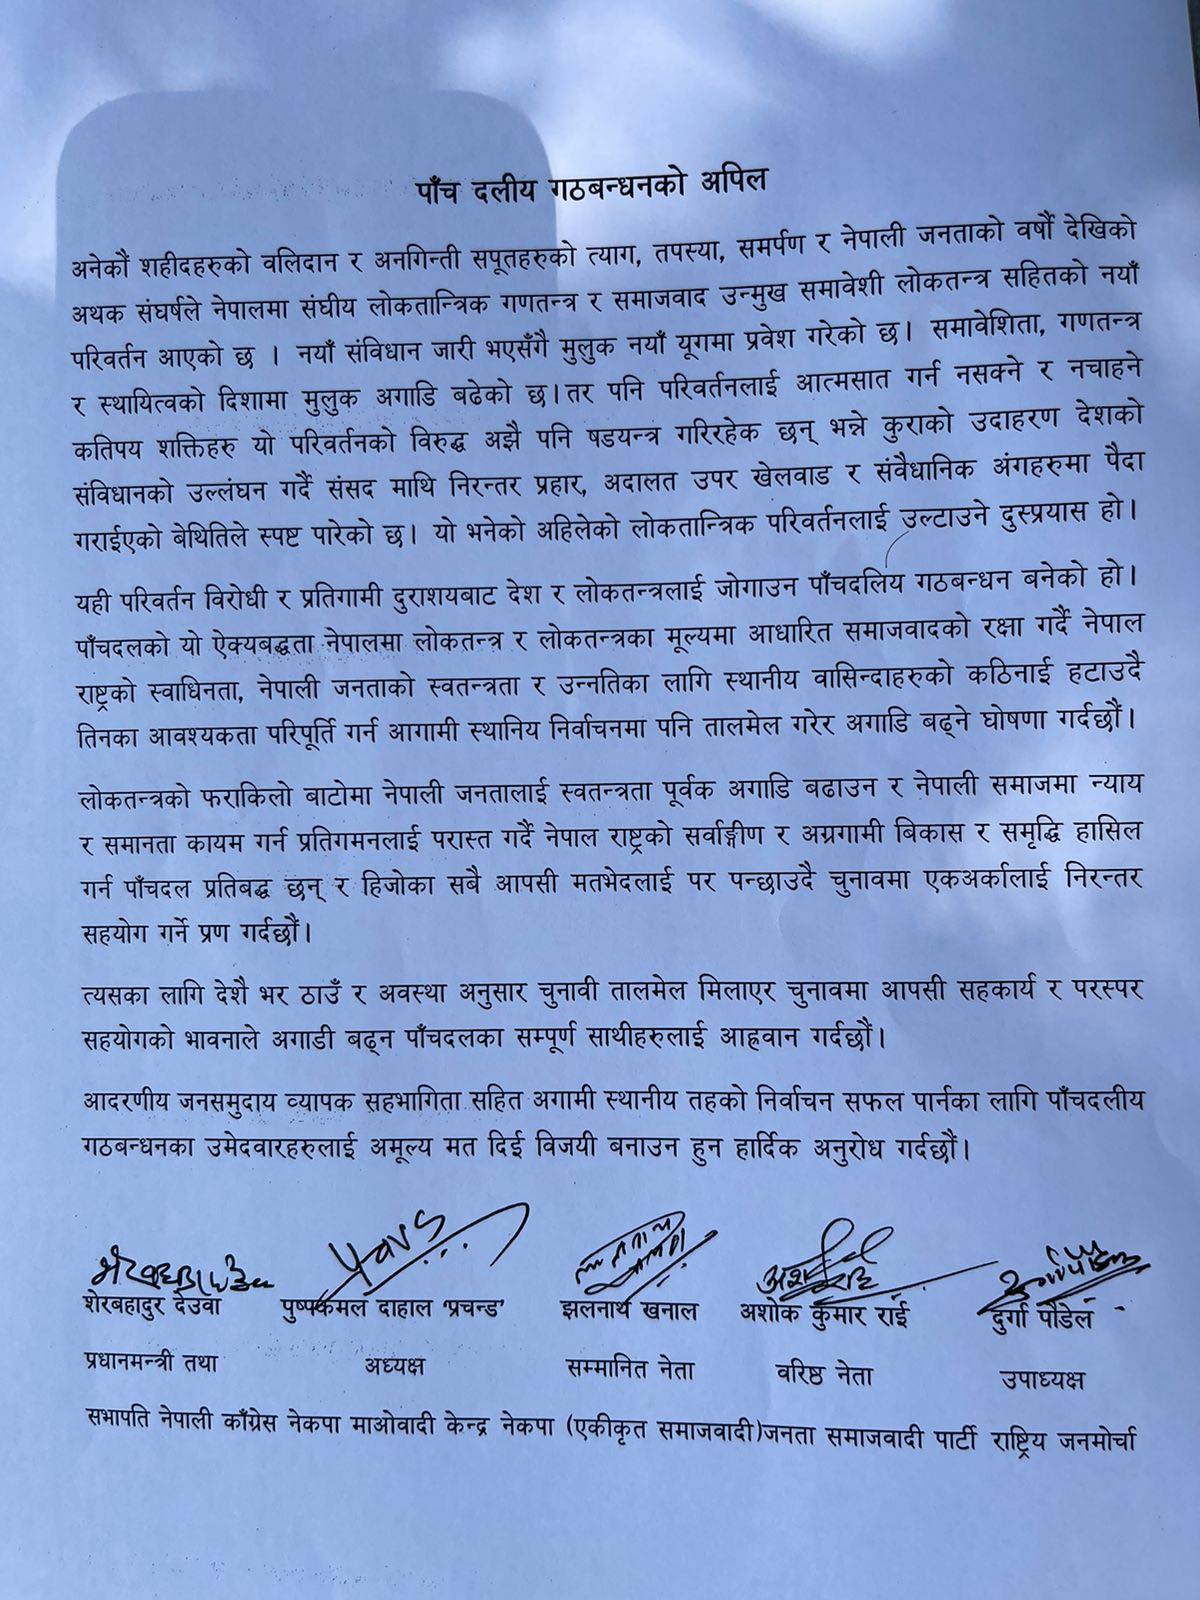 पाँच दलीय गठबन्धनको अपिल
अनेकौं शहीदहरुको वलिदान र अनगिन्ती सपूतहरुको त्याग, तपस्या, समर्पण र नेपाली जनताको वर्षौं देखिको
अथक संघर्षले नेपालमा संघीय लोकतान्त्रिक गणतन्त्र र समाजवाद उन्मुख समावेशी लोकतन्त्र सहितको नयाँ
परिवर्तन आएको छ । नयाँ संविधान जारी भएसँगै मुलुक नयाँ यूगमा प्रवेश गरेको छ। समावेशिता, गणतन्त्र
र स्थायित्वको दिशामा मुलुक अगाडि बढेको छ।तर पनि परिवर्तनलाई आत्मसात गर्न नसक्ने र नचाहने
कतिपय शक्तिहरु यो परिवर्तनको विरुद्ध अझै पनि षडयन्त्र गरिरहेक छन् भन्ने कुराको उदाहरण देशको
संविधानको उल्लंघन गर्दै संसद माथि निरन्तर प्रहार, अदालत उपर खेलवाड र संवैधानिक अंगहरुमा पैदा
गराईएको बेथितिले स्पष्ट पारेको छ। यो भनेको अहिलेको लोकतान्त्रिक परिवर्तनलाई उल्टाउने दुस्प्रयास हो।
यही परिवर्तन विरोधी र प्रतिगामी दुराशयबाट देश र लोकतन्त्रलाई जोगाउन पाँचदलिय गठबन्धन बनेको हो।
पाँचदलको यो ऐक्यबद्धता नेपालमा लोकतन्त्र र लोकतन्त्रका मूल्यमा आधारित समाजवादको रक्षा गर्दै नेपाल
राष्ट्रको स्वाधिनता, नेपाली जनताको स्वतन्त्रता र उन्नतिका लागि स्थानीय वासिन्दाहरुको कठिनाई हटाउदै
तिनका आवश्यकता परिपूर्ति गर्न आगामी स्थानिय निर्वाचनमा पनि तालमेल गरेर अगाडि बढ्ने घोषणा गर्दछौं।
लोकतन्त्रको फराकिलो बाटोमा नेपाली जनतालाई स्वतन्त्रता पूर्वक अगाडि बढाउन र नेपाली समाजमा न्याय
र समानता कायम गर्न प्रतिगमनलाई परास्त गर्दै नेपाल राष्ट्रको सर्वाङ्गीण र अग्रगामी बिकास र समृद्धि हासिल
गर्न पाँचदल प्रतिबद्ध छन् र हिजोका सबै आपसी मतभेदलाई पर पन्छाउदै चुनावमा एकअर्कालाई निरन्तर
सहयोग गर्ने प्रण गर्दछौं।
त्यसका लागि देशै भर ठाउँ र अवस्था अनुसार चुनावी तालमेल मिलाएर चुनावमा आपसी सहकार्य र परस्पर
सहयोगको भावनाले अगाडी बढ्न पाँचदलका सम्पूर्ण साथीहरुलाई आह्रवान गर्दछौं।
आदरणीय जनसमुदाय व्यापक सहभागिता सहित अगामी स्थानीय तहको निर्वाचन सफल पार्नका लागि पाँचदलीय
गठबन्धनका उमेदवारहरुलाई अमूल्य मत दिई विजयी बनाउन हुन हार्दिक अनुरोध गर्दछौं।
शेरबहादुर देउवा पुष्पकमल दाहाल ‘प्रचन्ड’ झलनाथ खनाल अशोक कुमार राई दुर्गा पौडेल
प्रधानमन्त्री तथा अध्यक्ष सम्मानित नेता वरिष्ठ नेता उपाध्यक्ष
सभापति नेपाली काँग्रेस नेकपा माओवादी केन्द्र नेकपा (एकीकृत समाजवादी)जनता समाजवादी पार्टी राष्ट्रिय जनमोर्चा